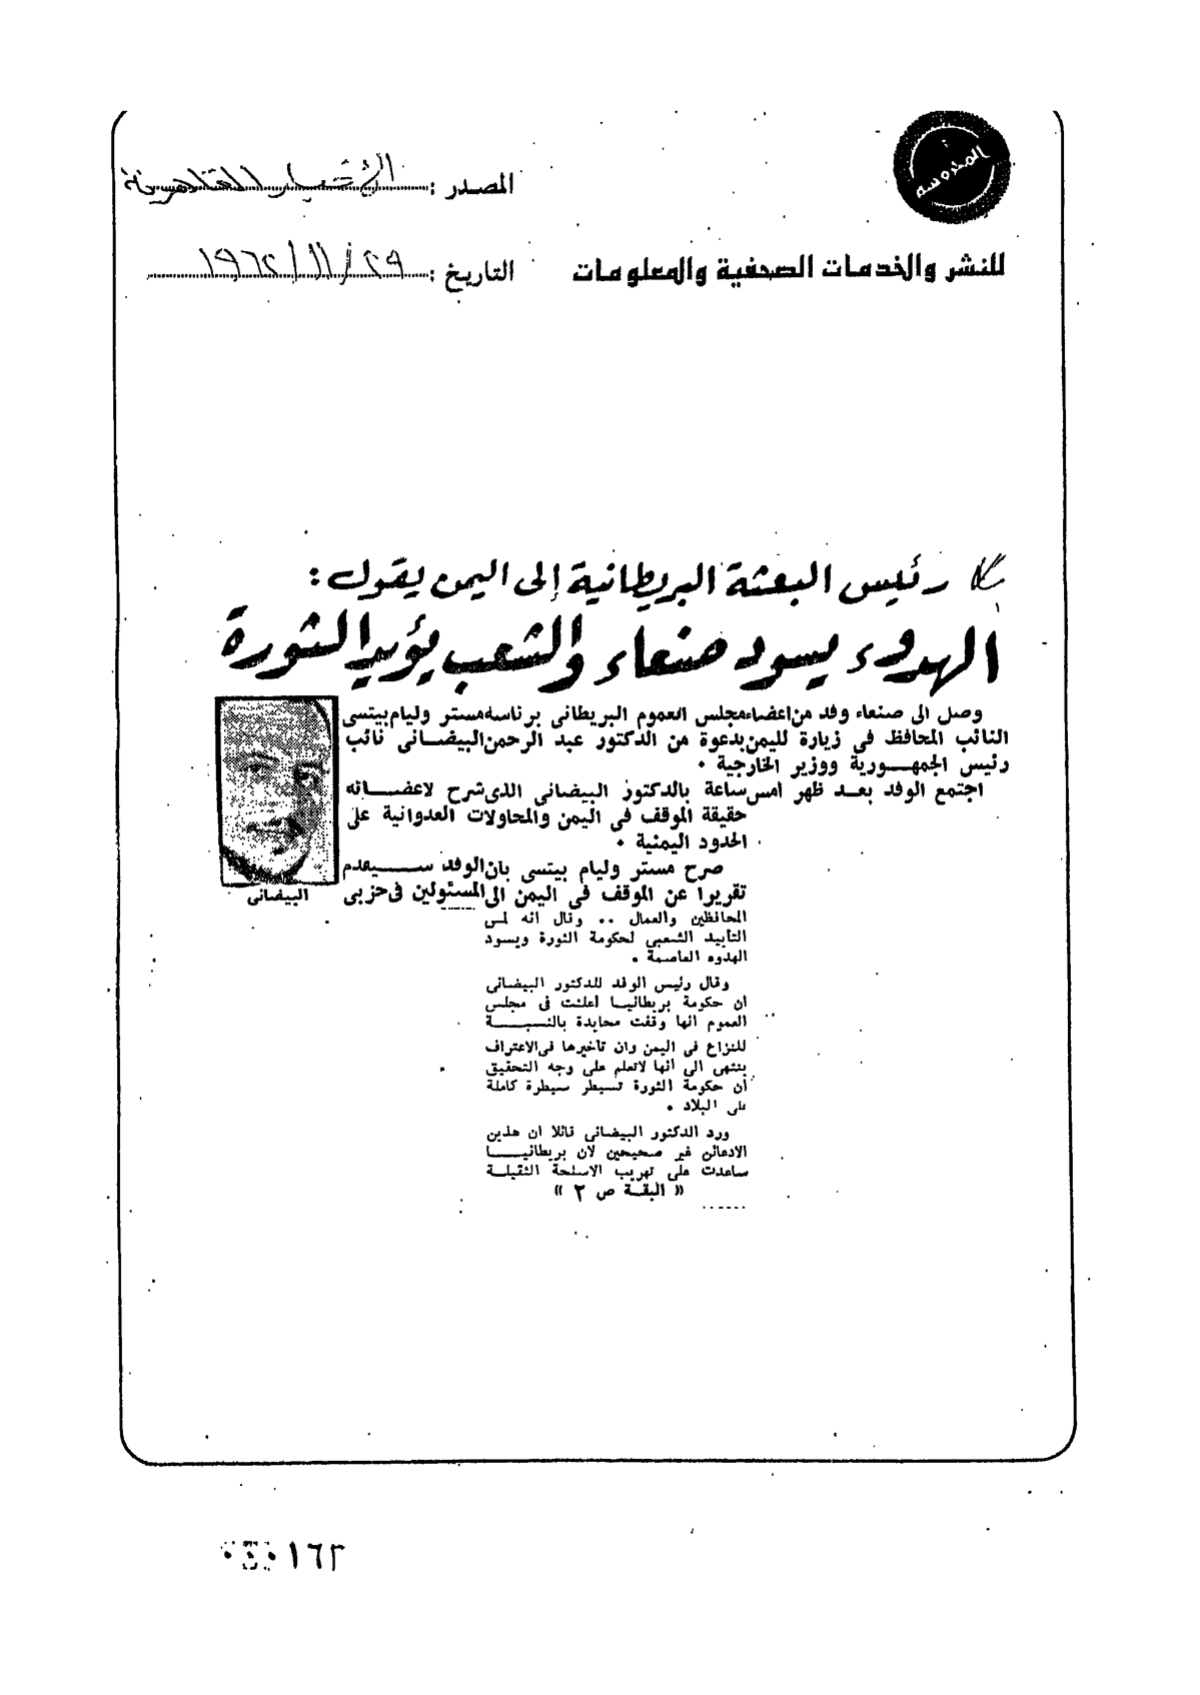 المحروسة
المصدر : الأخبار القاهرية
للنشر والخدمات الصحفية والمعلومات
التاريخ : ٢٩/١١/١٩٦٢
رئيس البعثة البريطانية إلى اليمن يقول :
الهدوء يسود صنعاء والشعب يؤيد الثورة
وصل الى صنعاء وفد من اعضاء مجلس العموم البريطانى برئاسة مستر وليام بيتسى
النائب المحافظ فى زيارة لليمن بدعوة من الدكتور عبد الرحمن البيضانى نائب
رئيس الجمهورية ووزير الخارجية .
اجتمع الوفد بعد ظهر امس ساعة بالدكتور البيضانى الذى شرح لاعضائه
حقيقة الموقف فى اليمن والمحاولات العدوانية على
الحدود اليمنية .
صرح مستر وليام بيتسى بان الوفد سيقدم
تقريرا عن الموقف فى اليمن الى المسئولين فى حزبى
البيضانى
المحافظين والعمال .. وقال انه لمس
التأييد الشعبى لحكومة الثورة ويسود
الهدوء العاصمة .
وقال رئيس الوفد للدكتور البيضانى
ان حكومة بريطانيا اعلنت فى مجلس
العموم انها وقفت محايدة بالنسبة
للنزاع فى اليمن وان تأخيرها فى الاعتراف
ينتهى الى انها لاتعلم على وجه التحقيق
أن حكومة الثورة تسيطر سيطرة كاملة
على البلاد .
ورد الدكتور البيضانى قائلا ان هذين
الادعائن غير صحيحين لأن بريطانيا
ساعدت على تهريب الاسلحة الثقيلة
« البقة ص ٢ »
١٦٣